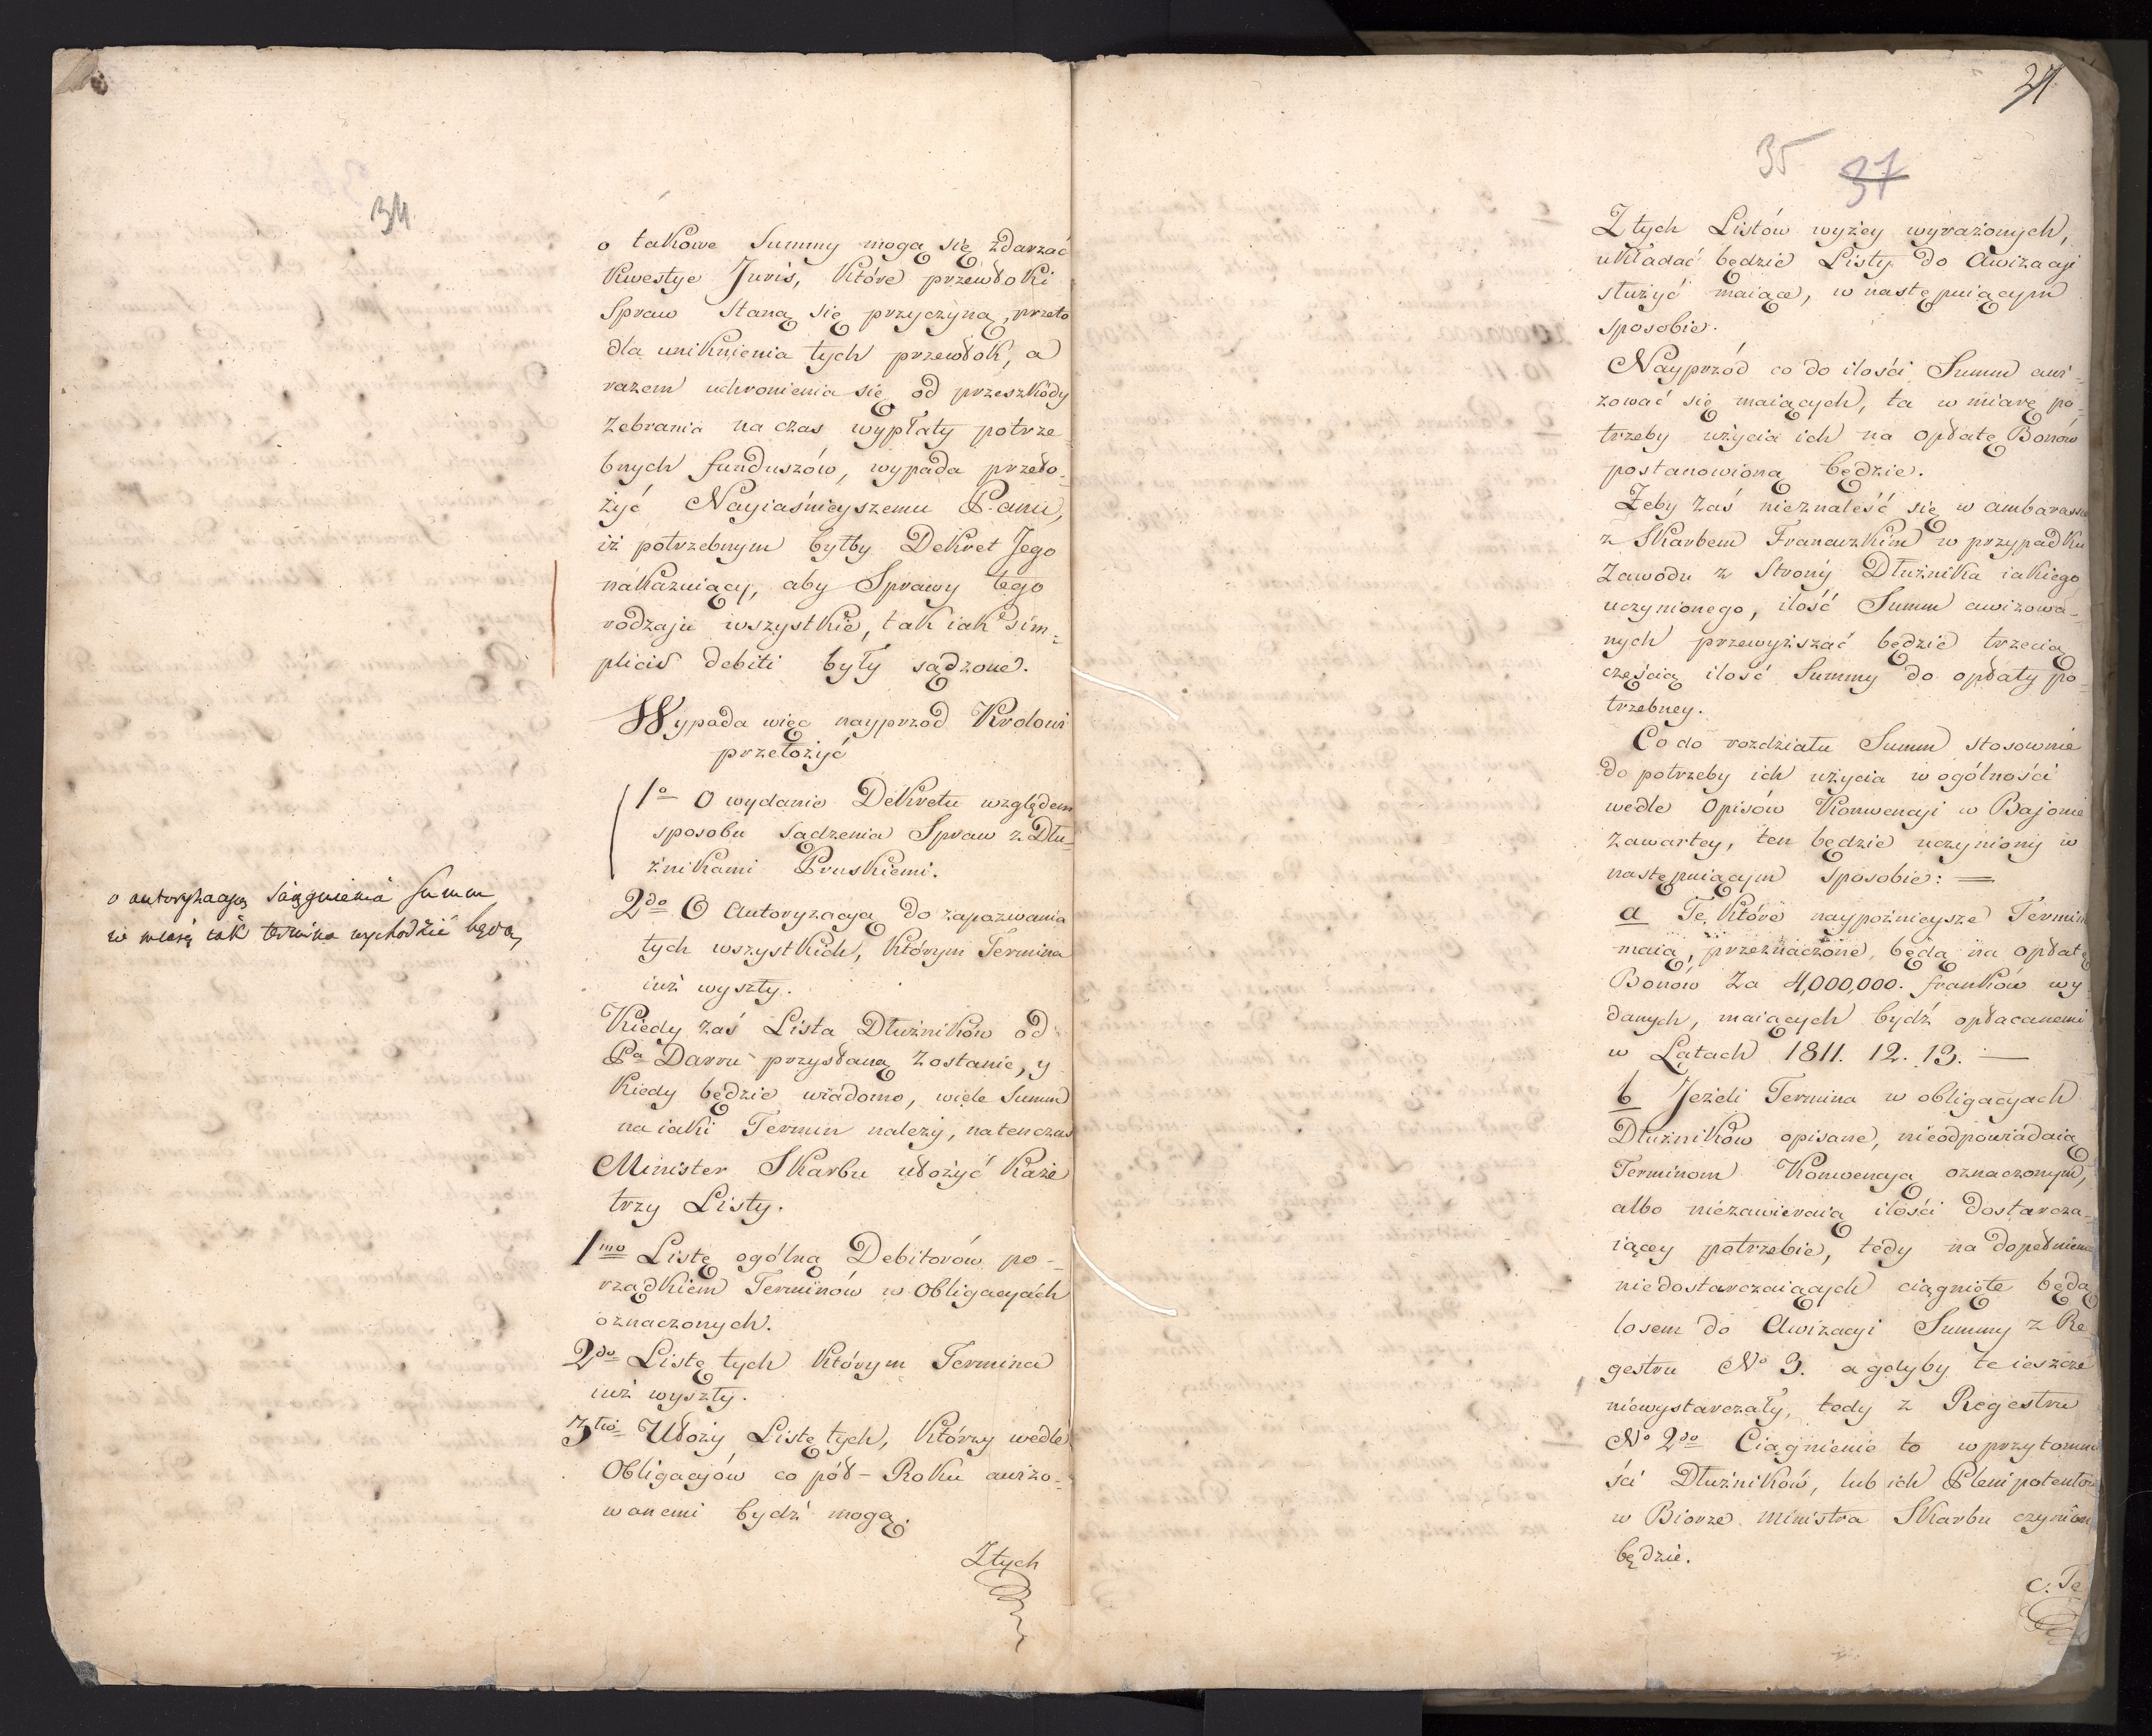 34
o takowe Summy mogą się zdarzać
kwestye Juris, które przewłoki
Spraw staną się przyczyną, przeto
dla uniknienia tych przewłok, a
razem uchronienia się od przeszkódy
zebrania na czas wypłaty potrze-
bnych funduszów, wypada przeło-
żyć Nayiaśnieyszemu Panu,
iż potrzebnym byłby Dekret Jego
nakazuiący, aby Sprawy tego
rodzaju wszystkie, tak iak sim-
plicis debiti były sądzone.
Wypada więc nayprzod Krolowi
przełożyć
1o O wydanie Dekretu względem
sposobu sądzenia Spraw z Dłu-
żnikami Pruskiemi.
2do O Autoryzacyą do zapozwania
tych wszystkich, którym Termina
iuż wyszły.
o autoryzacyą ściągnienia summ
w miarę iak termina wychodzić będą,
Kiedy zaś Lista Dłużników od
Pa Darru przysłaną zostanie, y
kiedy będzie wiadomo, wiele Summ
na iaki Termin należy, natenczas
Minister Skarbu ułożyć każe
trzy Listy.
1mo Listę ogólną Debitorów po-
rządkiem Terminów w Obligacyach
oznaczonych.
2do Listę tych którym Termina
iuż wyszły.
3tio Ułoży Listę tych, którzy wedle
Obligacyów co pół-Roku awizo-
wanemi bydź mogą.
Z tych
35 37
Z tych Listów wyżey wyrażonych,
układać będzie Listy do Awizacyi
służyć maiące, w następuiącym
sposobie.
Nayprzód co do ilości Summ awi-
zować się maiących, ta w miarę po-
trzeby użycia ich na opłatę Bonów
postanowioną będzie.
Żeby zaś nieznaleść się w ambarassie
z Skarbem Francuzkim w przypadku
zawodu z strony Dłużnika iakiego
uczynionego, ilość Summ awizowa-
nych przewyższać będzie trzecią
częścią ilość Summy do opłaty po-
trzebney.
Co do rozdziału Summ stosownie
do potrzeby ich użycia w ogólności
wedle Opisów Konwencyi w Bajonie
zawartey, ten będzie uczyniony w
następuiącym sposobie: =
a Te, które naypoźnieysze Termina
maią, przeznaczone, będą na opłatę
Bonów za 4,000,000. franków wy-
danych, maiących bydź opłacanemi
w Latach 1811. 12. 13. —
b Jeżeli Termina w obligacyach
Dłużników opisane, nieodpowiadaią
Terminom Konwencyą oznaczonym,
albo niezawieraią ilości dostarcza-
iącey potrzebie, tedy na dopełnienie
niedostarczaiących ciągnięte będą
losem do Awizacyi Summy z Re-
gestru No 3. a gdyby te ieszcze
niewystarczały, tedy z Regestru
No 2do Ciągnienie to w przytomno-
ści Dłużników, lub ich Plenipotentów
w Biorze Ministra Skarbu czynione
będzie.
c. Te